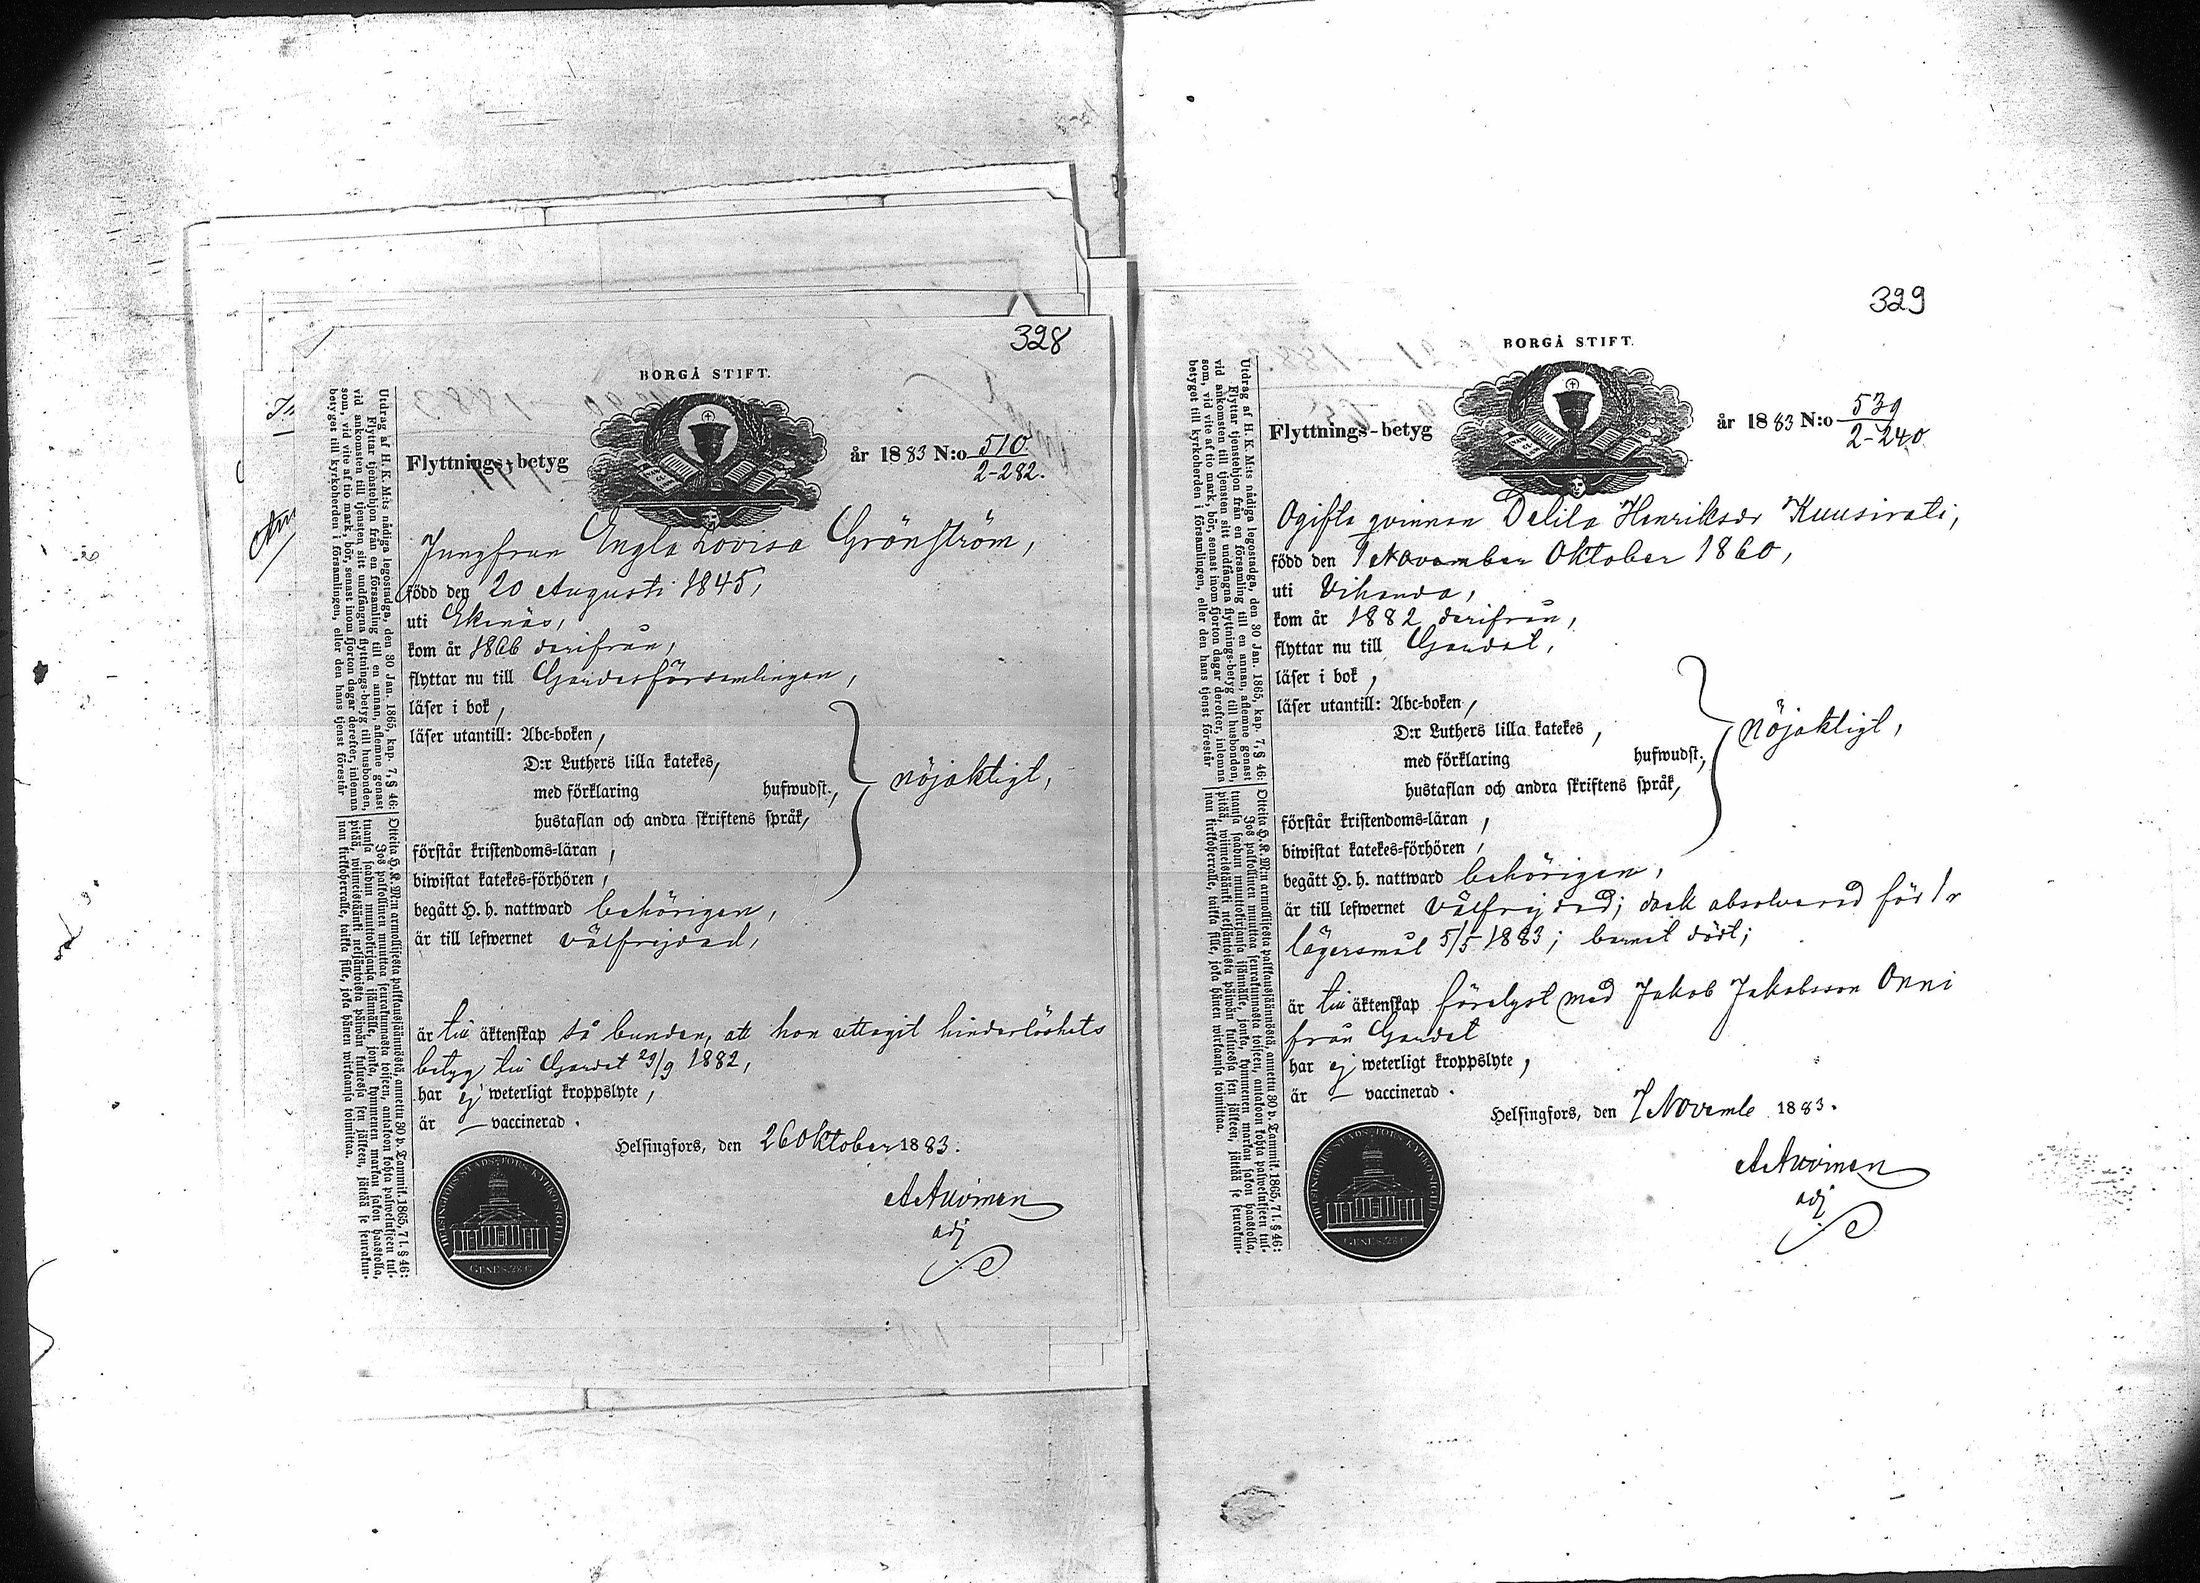 328
BORGÅ STIFT.
Flyttnings-betyg år 1883 N:o 510.
2-282.
Jungfrun Engla Lovisa Grönström,
född den 20 Augusti 1845,
uti Ekenäs,
kom år 1866 derifrån,
flyttar nu till Gardesförsamlingen,
läser i bok,
läser utantill: Abc-boken,
D:r Luthers lilla katekes,
med förklaring hufwudst.,
hustaflan och andra skriftens språk,
nöjaktigt,
förstår kristendoms-läran,
biwistat katekes-förhören,
begått H. h. nattward behörigen,
är till lefwernet välfrejdad,
är till äktenskap så bunden, att hon uttagit hinderlöshets
betyg till Gardet 29/9 1882,
har ej weterligt kroppslyte,
är — vaccinerad.
Helsingfors, den 26 Oktober 1883.
adj
HELSINGFORS STADS FÖRS. KYRKOSIGILL
GENES. 28 C.
Utdrag af H. K. M:ts nådiga legostadga, den 30 Jan. 1865, kap. 7, § 46:
Flyttar tjenstehjon från en församling till en annan, aflemne genast
vid ankomsten till tjensten sitt undfångna flyttnings-betyg till husbonden,
som, vid vite af tio mark, bör, senast inom fjorton dagar derefter, inlemna
betyget till kyrkoherden i församlingen, eller den hans tjenst förestår
329
BORGÅ STIFT.
Flyttnings-betyg år 1883 N:o 539
2-240.
Ogifta qvinnan Delila Henriksdr
född den 9 November Oktober 1860,
uti Vihanda,
kom år 1882 derifrån,
flyttar nu till Gardet,
läser i bok,
läser utantill: Abc-boken,
D:r Luthers lilla katekes,
med förklaring hufwudst.,
hustaflan och andra skriftens språk,
nöjaktigt,
förstår kristendoms-läran,
biwistat katekes-förhören,
begått H. h. nattward behörigen,
är till lefwernet välfrejdad; dock absolverad för 1a
lägersmål 5/5 1883; barnet dödt;
är till äktenskap förelyst med Jakob Jakobsson Onni
från Gardet
har ej weterligt kroppslyte,
är — vaccinerad.
Helsingfors, den 7 Novemb 1883.
adj
HELSINGFORS STADS FÖRS. KYRKOSIGILL
GENES. 28 C.
Utdrag af H. K. M:ts nådiga legostadga, den 30 Jan. 1865, kap. 7, § 46:
Flyttar tjenstehjon från en församling till en annan, aflemne genast
vid ankomsten till tjensten sitt undfångna flyttnings-betyg till husbonden,
som, vid vite af tio mark, bör, senast inom fjorton dagar derefter, inlemna
betyget till kyrkoherden i församlingen, eller den hans tjenst förestår